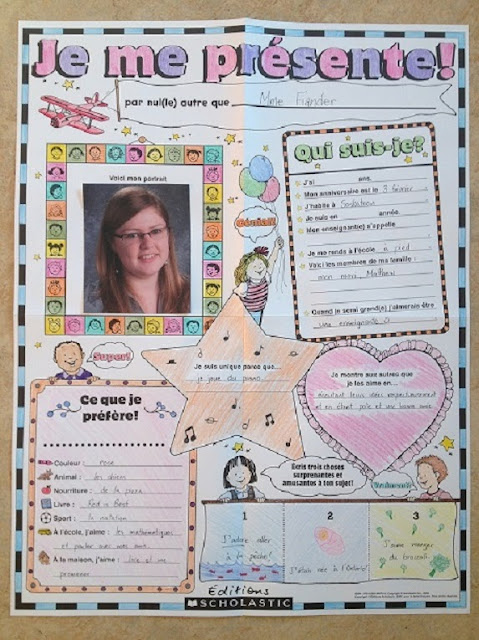 Je me présente!
par nul(le) autre que Mme Fiander
Voici mon portrait
Qui suis-je?
J'ai ans.
Mon anniversaire est le 3 février.
J'habite à
Je suis en année.
Mon enseignant(e) s'appelle
Je me rends à l'école à pied.
Voici les membres de ma famille :
mon mari, Matthew
Quand je serai grand(e) j'aimerais être
une enseignante
Génial!
Super!
Je suis unique parce que...
je joue du piano.
Je montre aux autres que
je les aime en...
écoutant leurs idées respectueusement
et en étant polie et une bonne amie.
Ce que je
préfère!
Couleur : rose
Animal : les chiens
Nourriture : de la pizza
Livre :
Sport : la natation
À l'école, j'aime : les mathématiques
et parler avec mes amis.
À la maison, j'aime : lire et me
promener
Écris trois choses
surprenantes et
amusantes à ton sujet!
1
J'adore aller
à la pêche!
2
J'étais née à l'Ontario!
3
J'aime manger
du brocoli.
Éditions
SCHOLASTIC